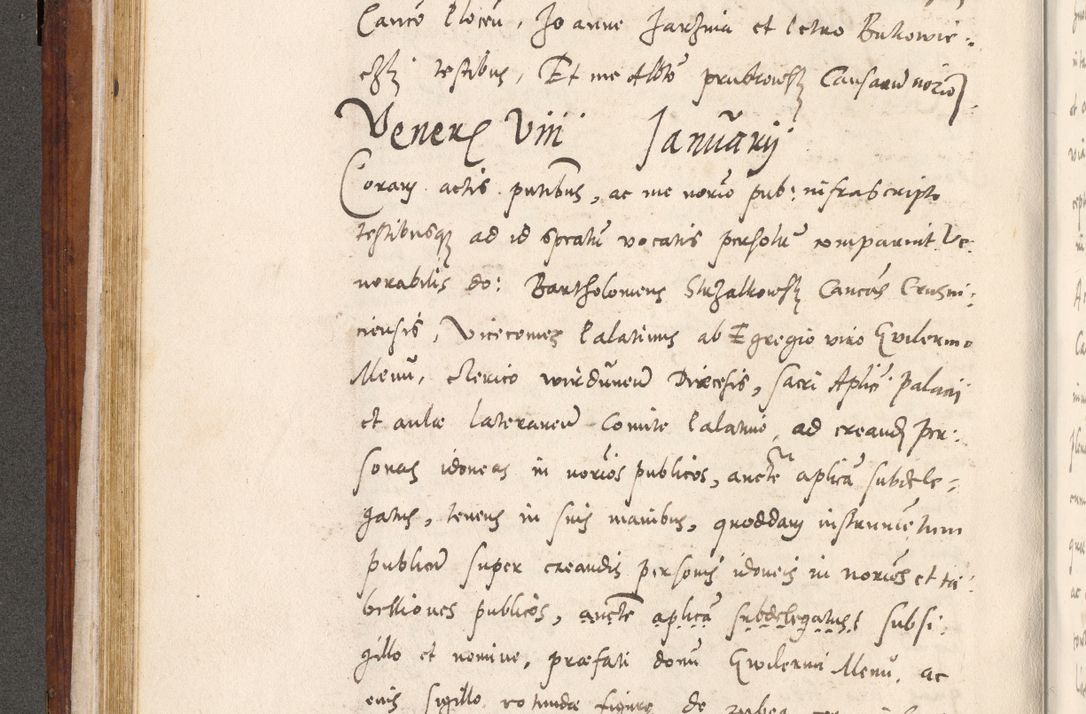 Canco Plocen, Joanne Jarzina et Petro Bukowie:
cskj testibus, Et me Alberto prutkowskj Causarum notario
Veneris Viii Januarij
Coram actis putibus, ac me notrio pub: infrascripto
testibusque ad id spcialr vocatis personlr comparuit Ve:
nerabilis do: Bartholomeus Strzalkowskj Cancus Crusui:
ciensis, Vicecomes Palatinus ab Egregio viro Gvilermo
Menu, clerico wirdunen Diœcesis, sacri Aplici Palacij
et aulæ lateranen Comite Palatino, ad creand per:
sonas idoneas in notrios publicos, aucte aplica subdele:
gatus, tenens in suis manibus, quoddam instrumentum
publicu super creandis personis idoneis in notrios et ta:
belliones publicos, aucte aplica subdelegatus subsi:
gillo et nomine, præfati domi Gvilermi Menu, ac
eius sigillo rotundæ figure de